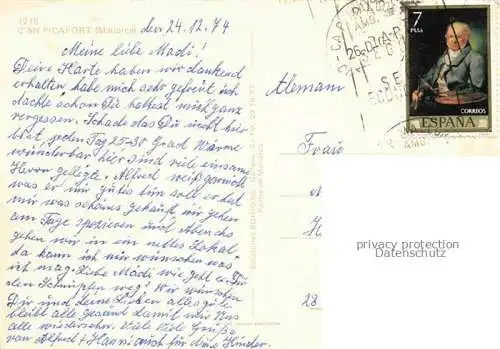 1215
C'AN PICAFORT (Mallorca)
den 24.12.74
Meine liebe Madi!
Deine Karte haben wir dankend
erhalten habe mich sehr gefreut ich
dachte schon Du hattest mich ganz
vergessen. Schade das Du nicht hier
bist, jeden Tag 25-30 Grad Wärme
wunderbar hier sind viele einsame
Herrn Alfred weiß garnich
was er mir gutes tun soll er hat
mir was schönes gekauft wir gehen
am Tage spazieren und Abends
gehen wir in ein nettes Lokal.
da kann ich mir wünschen was
ich mag. Liebe Madi wie geht es
den Schnupfen weg? Wir wünschen
Dir und deine Lieben alles gute
bleibt alle gesund damit wir uns
alle wiedersehen. Viele Viele Grüße
von Alfred + Hanni auch für deine Kinder.
Alemani
Frau
H
28
7
PTAS
CORREOS
ESPAÑA
privacy protection
Datenschutz